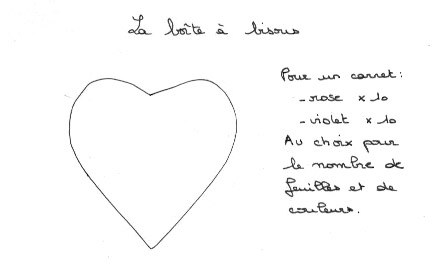 La boîte à bisous
Pour un carnet :
- rose x 10
- violet x 10
Au choix pour
le nombre de
feuilles et de
couleurs.